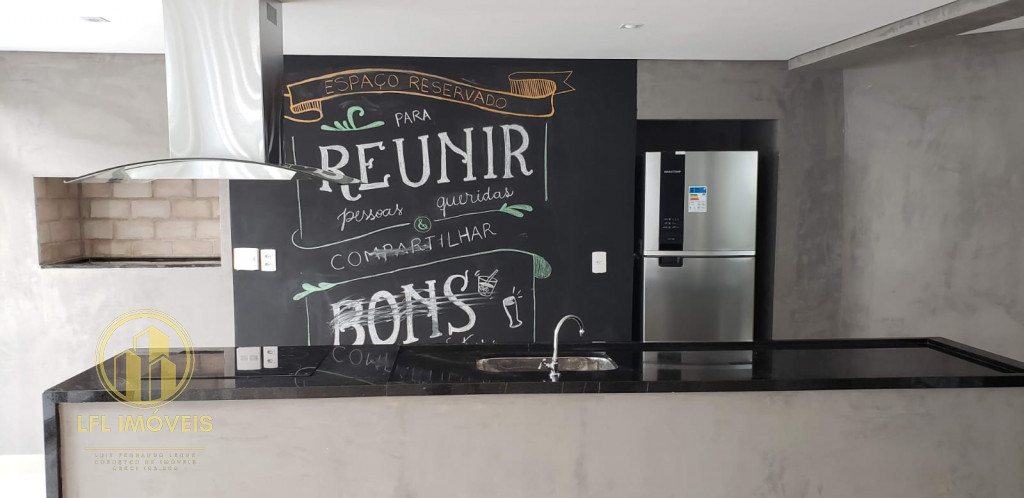 ESPAÇO RESERVADO
PARA
REUNIR
pessoas queridas
&
COMPARTILHAR
BONS
LFL IMOVEIS